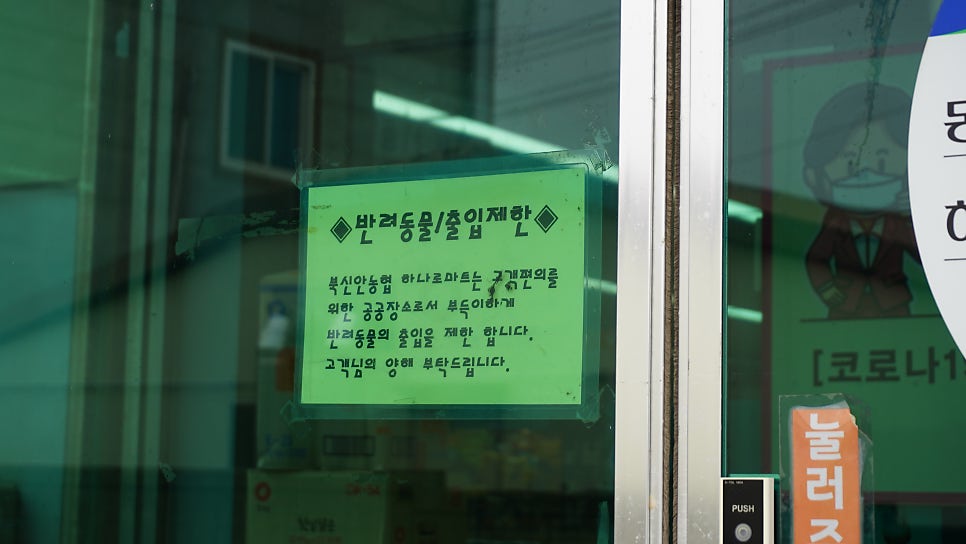 ◈반려동물/출입제한◈
북신안농협 하나로마트는 고객편의를
위한 공공장소로서 부득이하게
반려동물의 출입을 제한 합니다.
고객님의 양해 부탁드립니다.
[코로나1
PUSH
눌러주